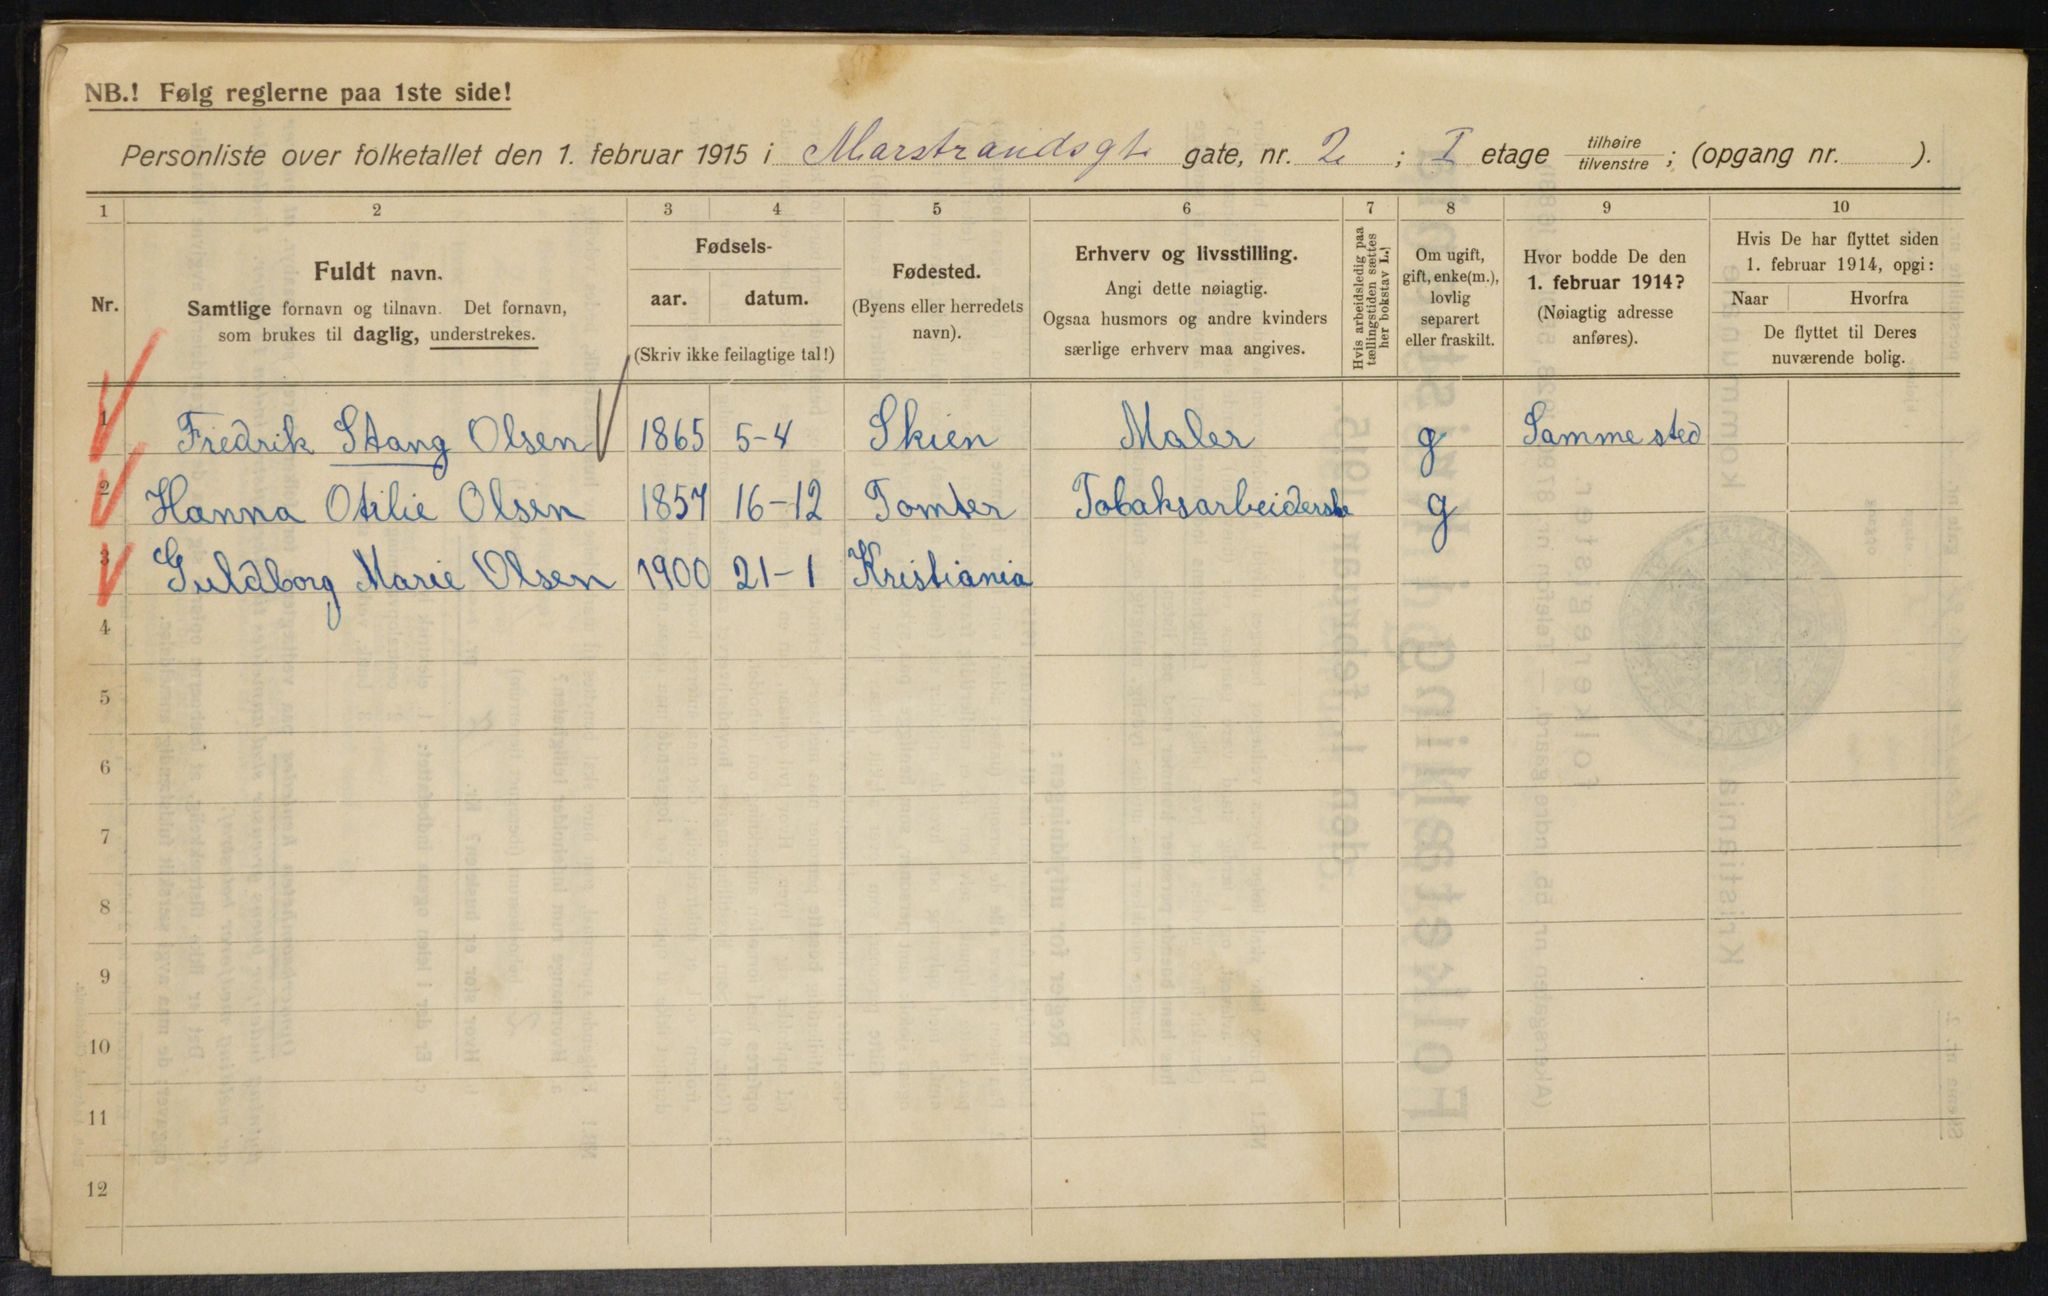 NB.! Følg reglerne paa 1ste side!
Personliste over folketallet den 1. februar 1915 i Marstrandsgt. gate, nr. 2 ; I etage tilhøire tilvenstre ; (opgang nr. ).
1 2 3 4 5 6 7 8 9 10
Nr.
Fuldt navn.
Samtlige fornavn og tilnavn. Det fornavn,
som brukes til daglig, understrekes.
Fødsels-
aar. datum.
(Skriv ikke feilagtige tal!)
Fødested.
(Byens eller herredets
navn).
Erhverv og livsstilling.
Angi dette nøiagtig.
Ogsaa husmors og andre kvinders
særlige erhverv maa angives.
Hvis arbeidsledig paa
tællingstiden sættes
her bokstav L.
Om ugift,
gift, enke(m.),
lovlig
separert
eller fraskilt.
Hvor bodde De den
1. februar 1914?
(Nøiagtig adresse
anføres).
Hvis De har flyttet siden
1. februar 1914, opgi:
Naar Hvorfra
De flyttet til Deres
nuværende bolig.
1 Fredrik Stang Olsen 1865 5-4 Skien Maler g Samme sted
2 Hanna Otilie Olsen 1857 16-12 Tomter Tobaksarbeiderske g
3 Guldborg Marie Olsen 1900 21-1 Kristiania
4
5
6
7
8
9
10
11
12